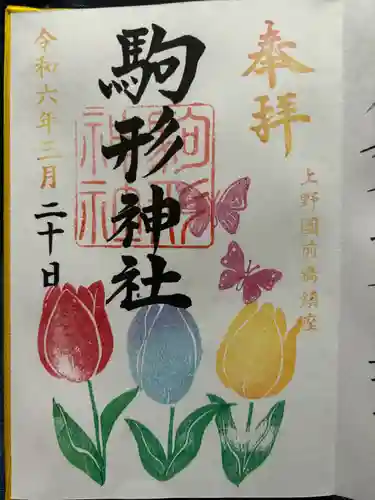 奉拝
上野國前橋鎮座
駒形神社
駒形神社
令和六年三月二十日